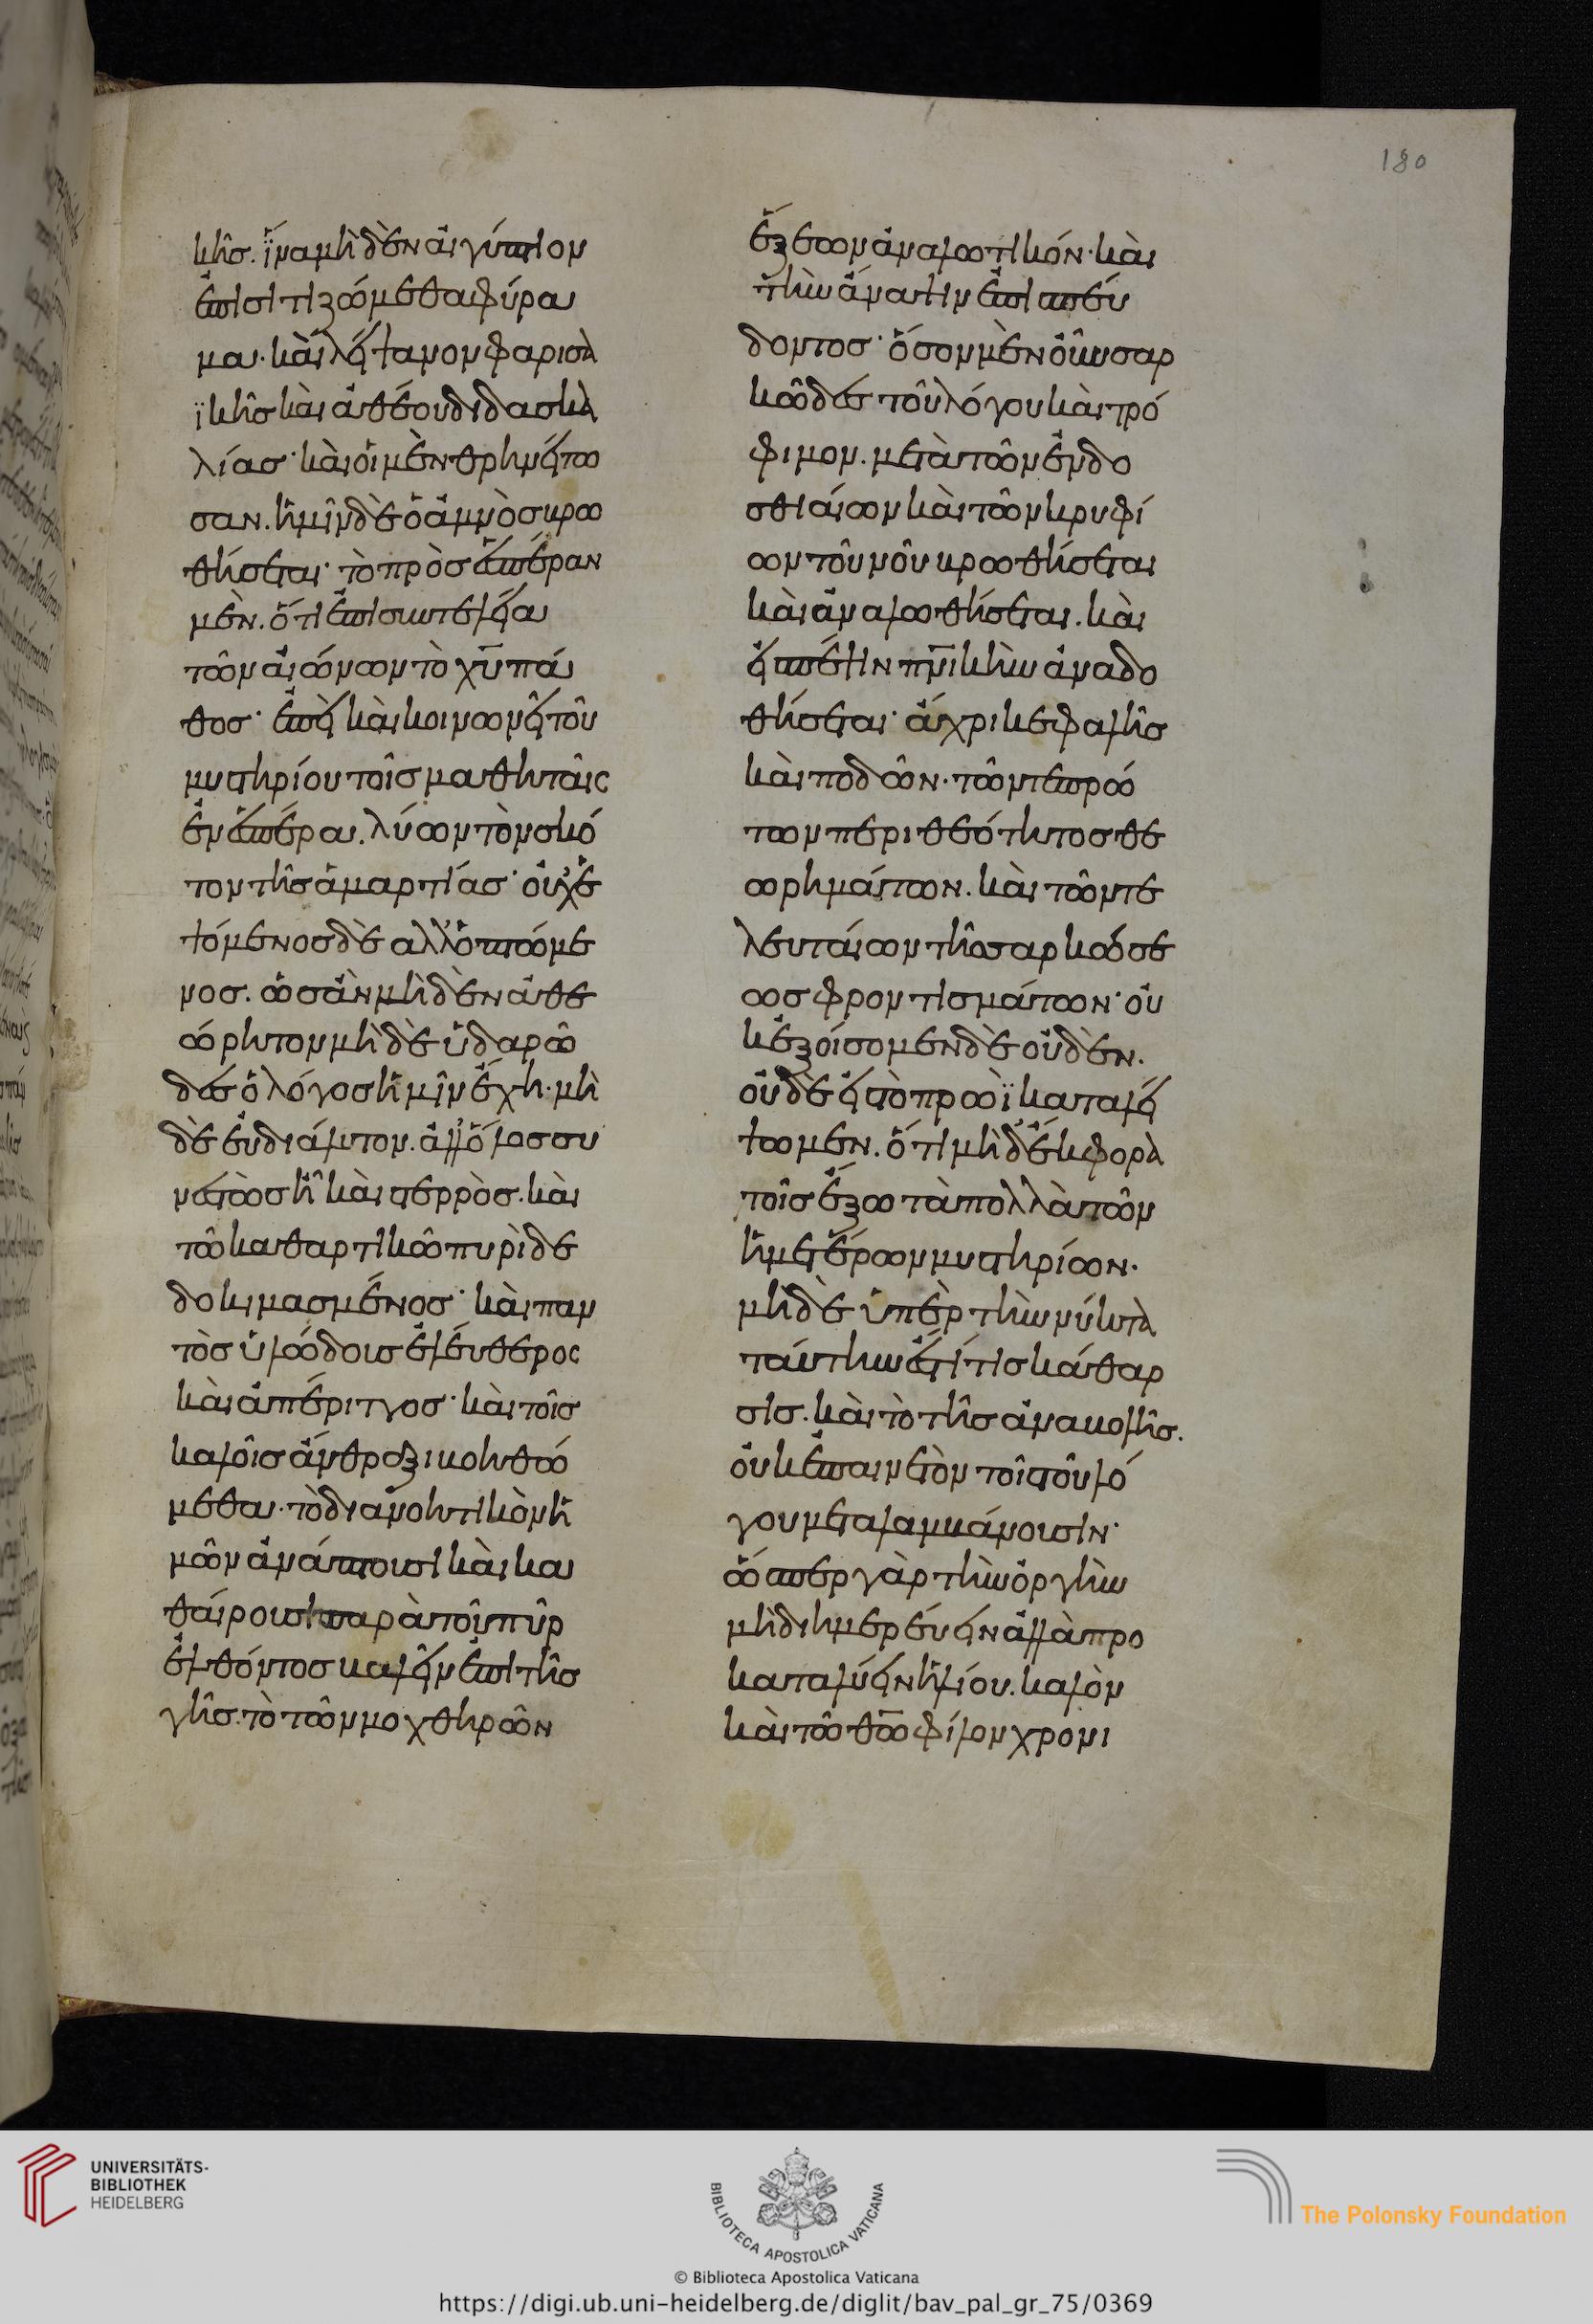 κῆς. ἵνα μὴ δὲν αἰγύπτιον
ἐπισιτιζώμεθα φύρα
μα. καὶ λείψανον φαρισα
ϊκῆς καὶ ἀθέου διδασκα
λίας· καὶ οἱ μὲν θρηνείτω
σαν. ἡμῖν δὲ ὁ ἀμνὸς βρω
θήσεται· τὸ πρὸς ἑσπέραν
μὲν. ὅτι ἐπὶ συντελεία
τῶν αἰώνων τὸ χυ πά
θος· ἐπεὶ καὶ κοινωνεῖ τοῦ
μυστηρίου τοῖς μαθηταῖς
ἐν ἑσπέρα. λύων τὸν σκό
τον τῆς ἁμαρτίας· οὐχ' ἑ
ψόμενος δὲ αλλ' ὀπτώμε
νος. ὡς ἂν μὴ δὲν ἀθε
ώρητον μὴ δὲ ὑδαρῶ
δες ὁ λόγος ἡμῖν ἔχη. μὴ
δὲ εὐδιάλυτον. ἀλλ' ὅλος συ
νεστὼς ἦ καὶ στερρὸς. καὶ
τῶ καθαρτικῶ πυρὶ δε
δοκιμασμένος· καὶ παν
τὸς ὑλώδους ἐλεύθερος
καὶ ἀπέριττος· καὶ τοῖς
καλοῖς ἄνθραξι βοηθώ
μεθα. τὸ διανοητικὸν ἡ
μῶν ἀνάπτουσι καὶ κα
θαίρουσι παρὰ τοῦ πῦρ
ἐλθόντος βαλεῖν ἐπὶ τῆς
γῆς. τὸ τῶν μοχθηρῶν
180
ἕξεων ἀναλωτικόν. καὶ
τὴν ἄναψιν ἐπισπεύ
δοντος· ὅσον μὲν οὖν σαρ
κῶδες τοῦ λόγου καὶ τρό
φιμον. μετὰ τῶν ἐνδο
σθιαίων καὶ τῶν κρυφί
ων τοῦ νοῦ βρωθήσεται
καὶ ἀναλωθήσεται. καὶ
εἰς πέψιν πνικὴν ἀναδο
θήσεται· ἄχρι κεφαλῆς
καὶ ποδῶν. τῶν τε πρώ
των περὶ θεότητος θε
ωρημάτων. καὶ τῶν τε
λευταίων τῆς σαρκώσε
ως φροντισμάτων· οὐ
κ ἐξοίσομεν δὲ οὐδὲν.
οὐδὲ εἰς τὸ πρωὶ καταλεί
ψωμεν. ὅτι μὴ δὲ ἔκφορα
τοῖς ἔξω τὰ πολλὰ τῶν
ἡμετέρων μυστηρίων.
μὴ δὲ ὑπὲρ τὴν νύκτα
ταύτην ἔστί τις κάθαρ
σις. καὶ τὸ τῆς ἀναβολῆς.
οὐκ ἐπαινετὸν τοῖς τοῦ λό
γου μεταλαμβάνουσιν·
ὥσπερ γὰρ τὴν ὀργὴν
μὴ διημερεύειν ἀλλὰ προ
καταλύειν ἡλίου. καλὸν
καὶ τῶ θῶ φίλον χρονι
UNIVERSITÄTS-
BIBLIOTHEK
HEIDELBERG
BIBLIOTECA APOSTOLICA VATICANA
© Biblioteca Apostolica Vaticana
The Polonsky Foundation
https://digi.ub.uni-heidelberg.de/diglit/bav_pal_gr_75/0369